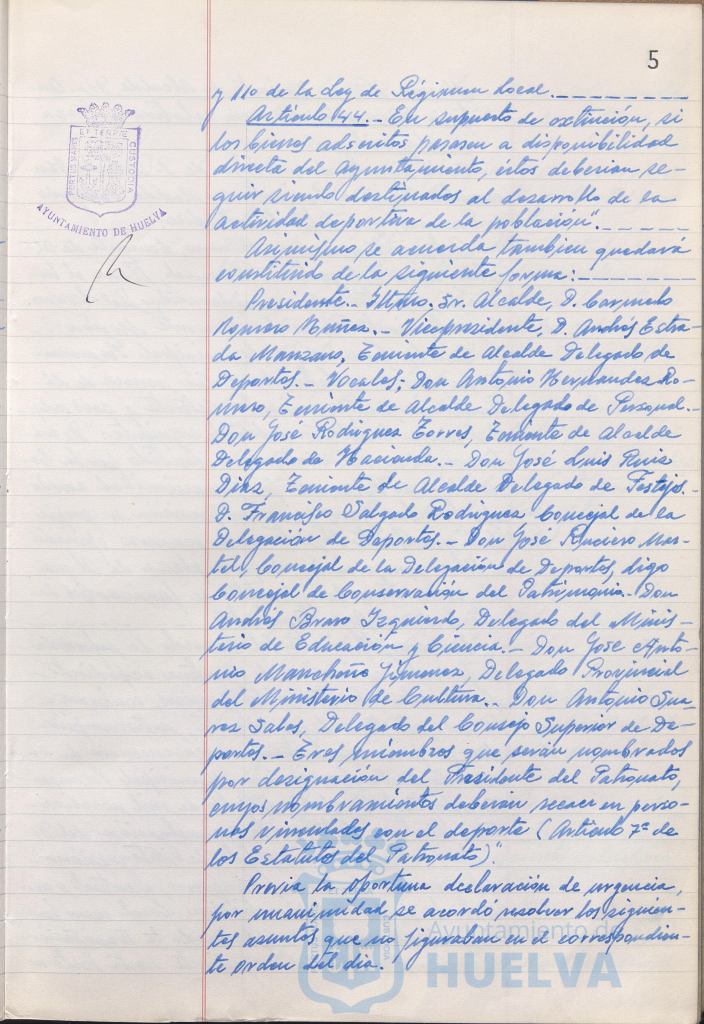 5
y 110 de la Ley de Régimen Local.
Artículo 44.- En supuesto de extinción, si
los bienes adscritos pasasen a disponibilidad
directa del Ayuntamiento, éstos deberian se-
guir siendo destinados al desarrollo de la
actividad deportiva de la población".
PORTUS MARIS ET TERRAE CUSTODIA
AYUNTAMIENTO DE HUELVA
Asimismo se acuerda tambien quedará
constituido de la siguiente forma:
Presidente.- Iltmo. Sr. Alcalde, D. Carmelo
Romero Núñez.- Vicepresidente, D. Andrés Estra-
da Manzano, Teniente de Alcalde Delegado de
Deportes.- Vocales; Don Antonio Hernandez Ro-
mero, Teniente de Alcalde Delegado de Personal.-
Don José Rodriguez Torres, Teniente de Alcalde
Delegado de Hacienda.- Don José Luis Ruiz
Diaz, Teniente de Alcalde Delegado de Festejos.-
D. Francisco Salgado Rodriguez Concejal de la
Delegación de Deportes.- Don José Ruciero Mar-
tel, Concejal de la Delegación de Deportes, digo
Concejal de Conservación del Patrimonio. Don
Andrés Bravo Izquierdo, Delegado del Minis-
terio de Educación y Ciencia.- Don José Anto-
nio Mancheño Jimenez, Delegado Provincial
del Ministerio de Cultura.- Don Antonio Sua-
rez Sales, Delegado del Consejo Superior de De-
portes.- Tres miembros que serán nombrados
por designación del Presidente del Patronato,
cuyos nombramientos deberán recaer en perso-
nas vinculadas con el deporte (Artículo 7º de
los Estatutos del Patronato)".
Previa la oportuna declaración de urgencia,
por unanimidad se acordó resolver los siguien-
tes asuntos que no figuraban en el correspondien-
te orden del dia.
Ayuntamiento de
HUELVA